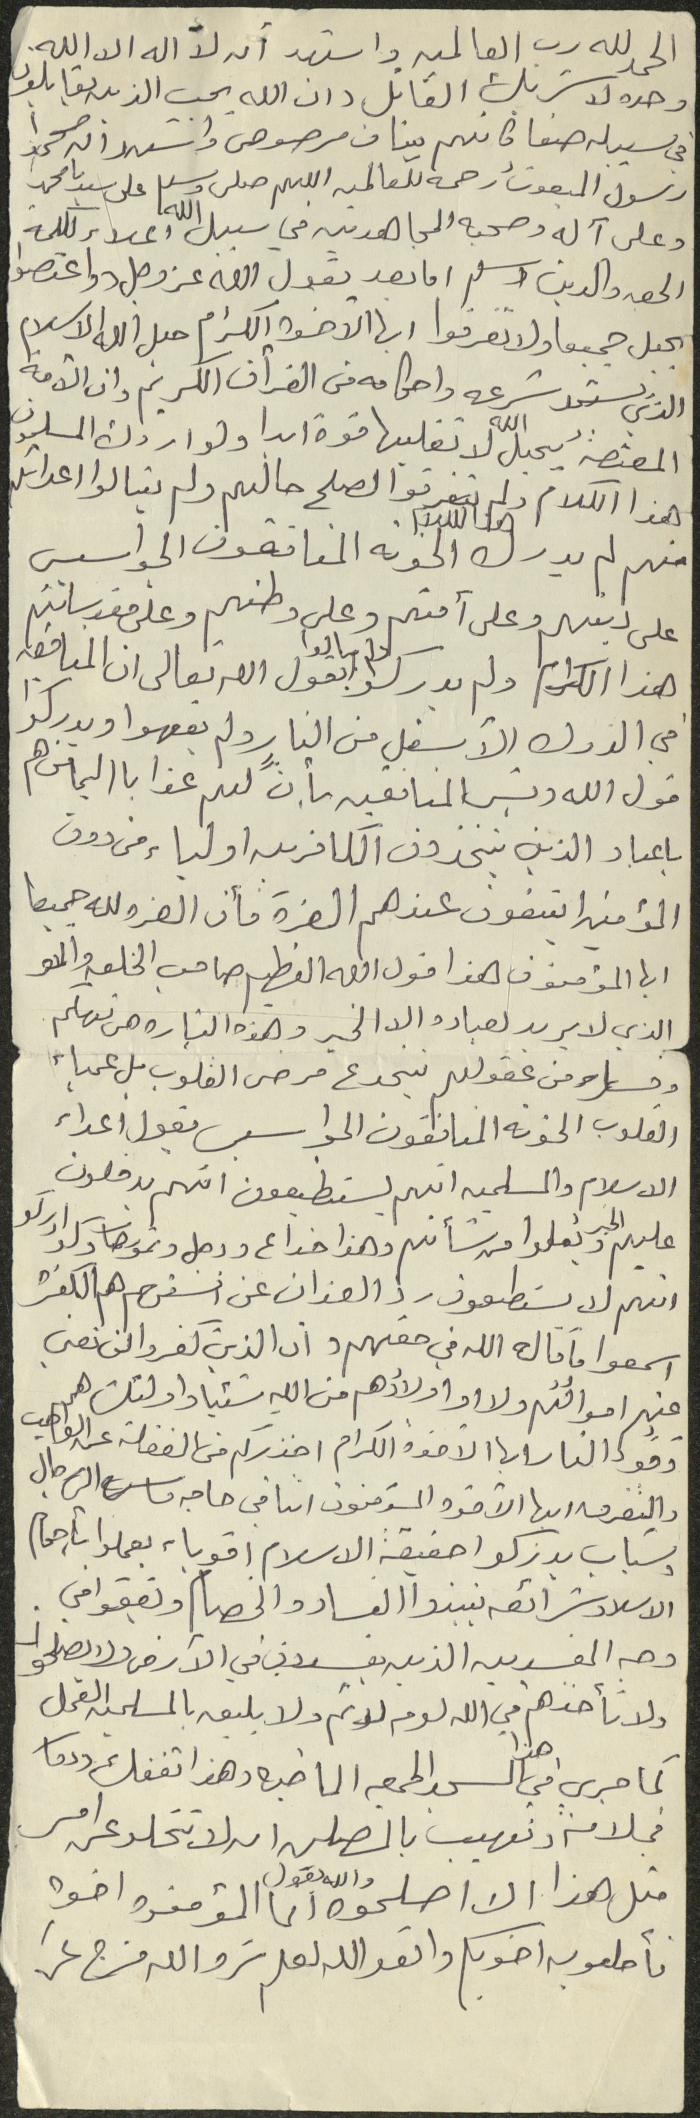 الحمد لله رب العالمين واشهد أن لا اله الا الله
وحده لا شريك القائل ان الله يحب الذين يقاتلون
في سبيله صفا كأنهم بنيان مرصوص واشهد أن محمداً
رسول المبعوث رحمة للعالمين اللهم صلى وسلم على سيدنا محمد
وعلى آله وصحبه المجاهدين في سبيل الله اعلاء لكلمة
الحق والدين اما بعد يقول الله عز وجل واعتصموا
بحبل جميعا ولا تفرقوا ايها الاخوة الكرام حبل الله الاسلام
الذي شرعه واحكامه من القرآن الكريم وان الأمة
المعتصمة بحبل الله لا تغلبها قوة ابدا ولو ادرك المسلمون
هذا الكلام ولم يتفرقوا لصلح حالهم ولم ينالوا اعدائهم
منهم لم يدرك هذا الكلام الخونه المنافقون الجواسيس
على دينهم وعلى أمتهم وعلى وطنهم وعلى مقدساتهم
هذا الكلام ولم يدركوا ولم يبالوا بقول الله تعالى ان المنافقين
في الدرك الأسفل من النار ولم يفهموا ويدركوا
قول الله وبشر المنافقين بأن لهم عذابا اليما من هم
يا عباد الذين يتخذون الكافرين اولياء من دون
المؤمنين ايبتغون عندهم العزة فأن العزه لله جميعا
ايها المؤمنون هذا قول الله العظيم صاحب الخلق والأمر
الذي لا يريد لعباده الا الخير وهذه
من عقولهم ينخدع مرضى القلوب بل عمياء
القلوب الخونه المنافقون الجواسيس بقول اعداء
الاسلام والمسلمين انهم يستطيعون انهم يدخلون
عليهم الخير ويعلوا من شأنهم وهذا خداع ودجل
انهم لا يستطعون رد العذاب عن انفسهم هم الكفرة
اسمعوا ما قال الله في حقهم ان الذين كفروا لن تغني
عنهم اموالهم ولا اولادهم من الله شيئا واولئك هم
وقود النار ايها الاخوة الكرام احذركم من الغفلة عن الواجب
والتفرق ايها الأخوة المؤمنون اننا في حاجه الى رجال
بشباب يدركوا حقيقة الاسلام اقوياء يعملوا بأحكام
الاسلام شرائعه ينبذوا الفساد والخصام ويقفوا في
وجه المفسدين الذين يفسدون في الأرض ولا يصلحون
ولا تأخذهم في الله لومه لائم ولا يليق بالمسلمين العمل
كما جرى في هذا المسجد الجمعه الماضيه وهذا
ونهيب بالمصلين ان لا تتخلوا عن امر
مثل هذا الا اصلحوه والله يقول انما المؤمنون اخوة
فأصلحوا بين اخويكم واتقوا الله لعلكم